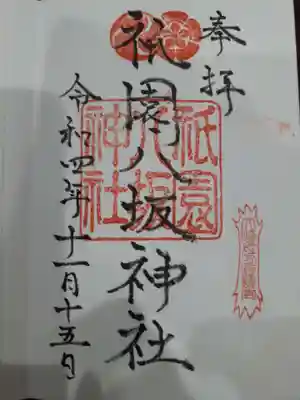 奉拝
祇園八坂神社
祇園
八坂
神社
令和四年十一月十五日